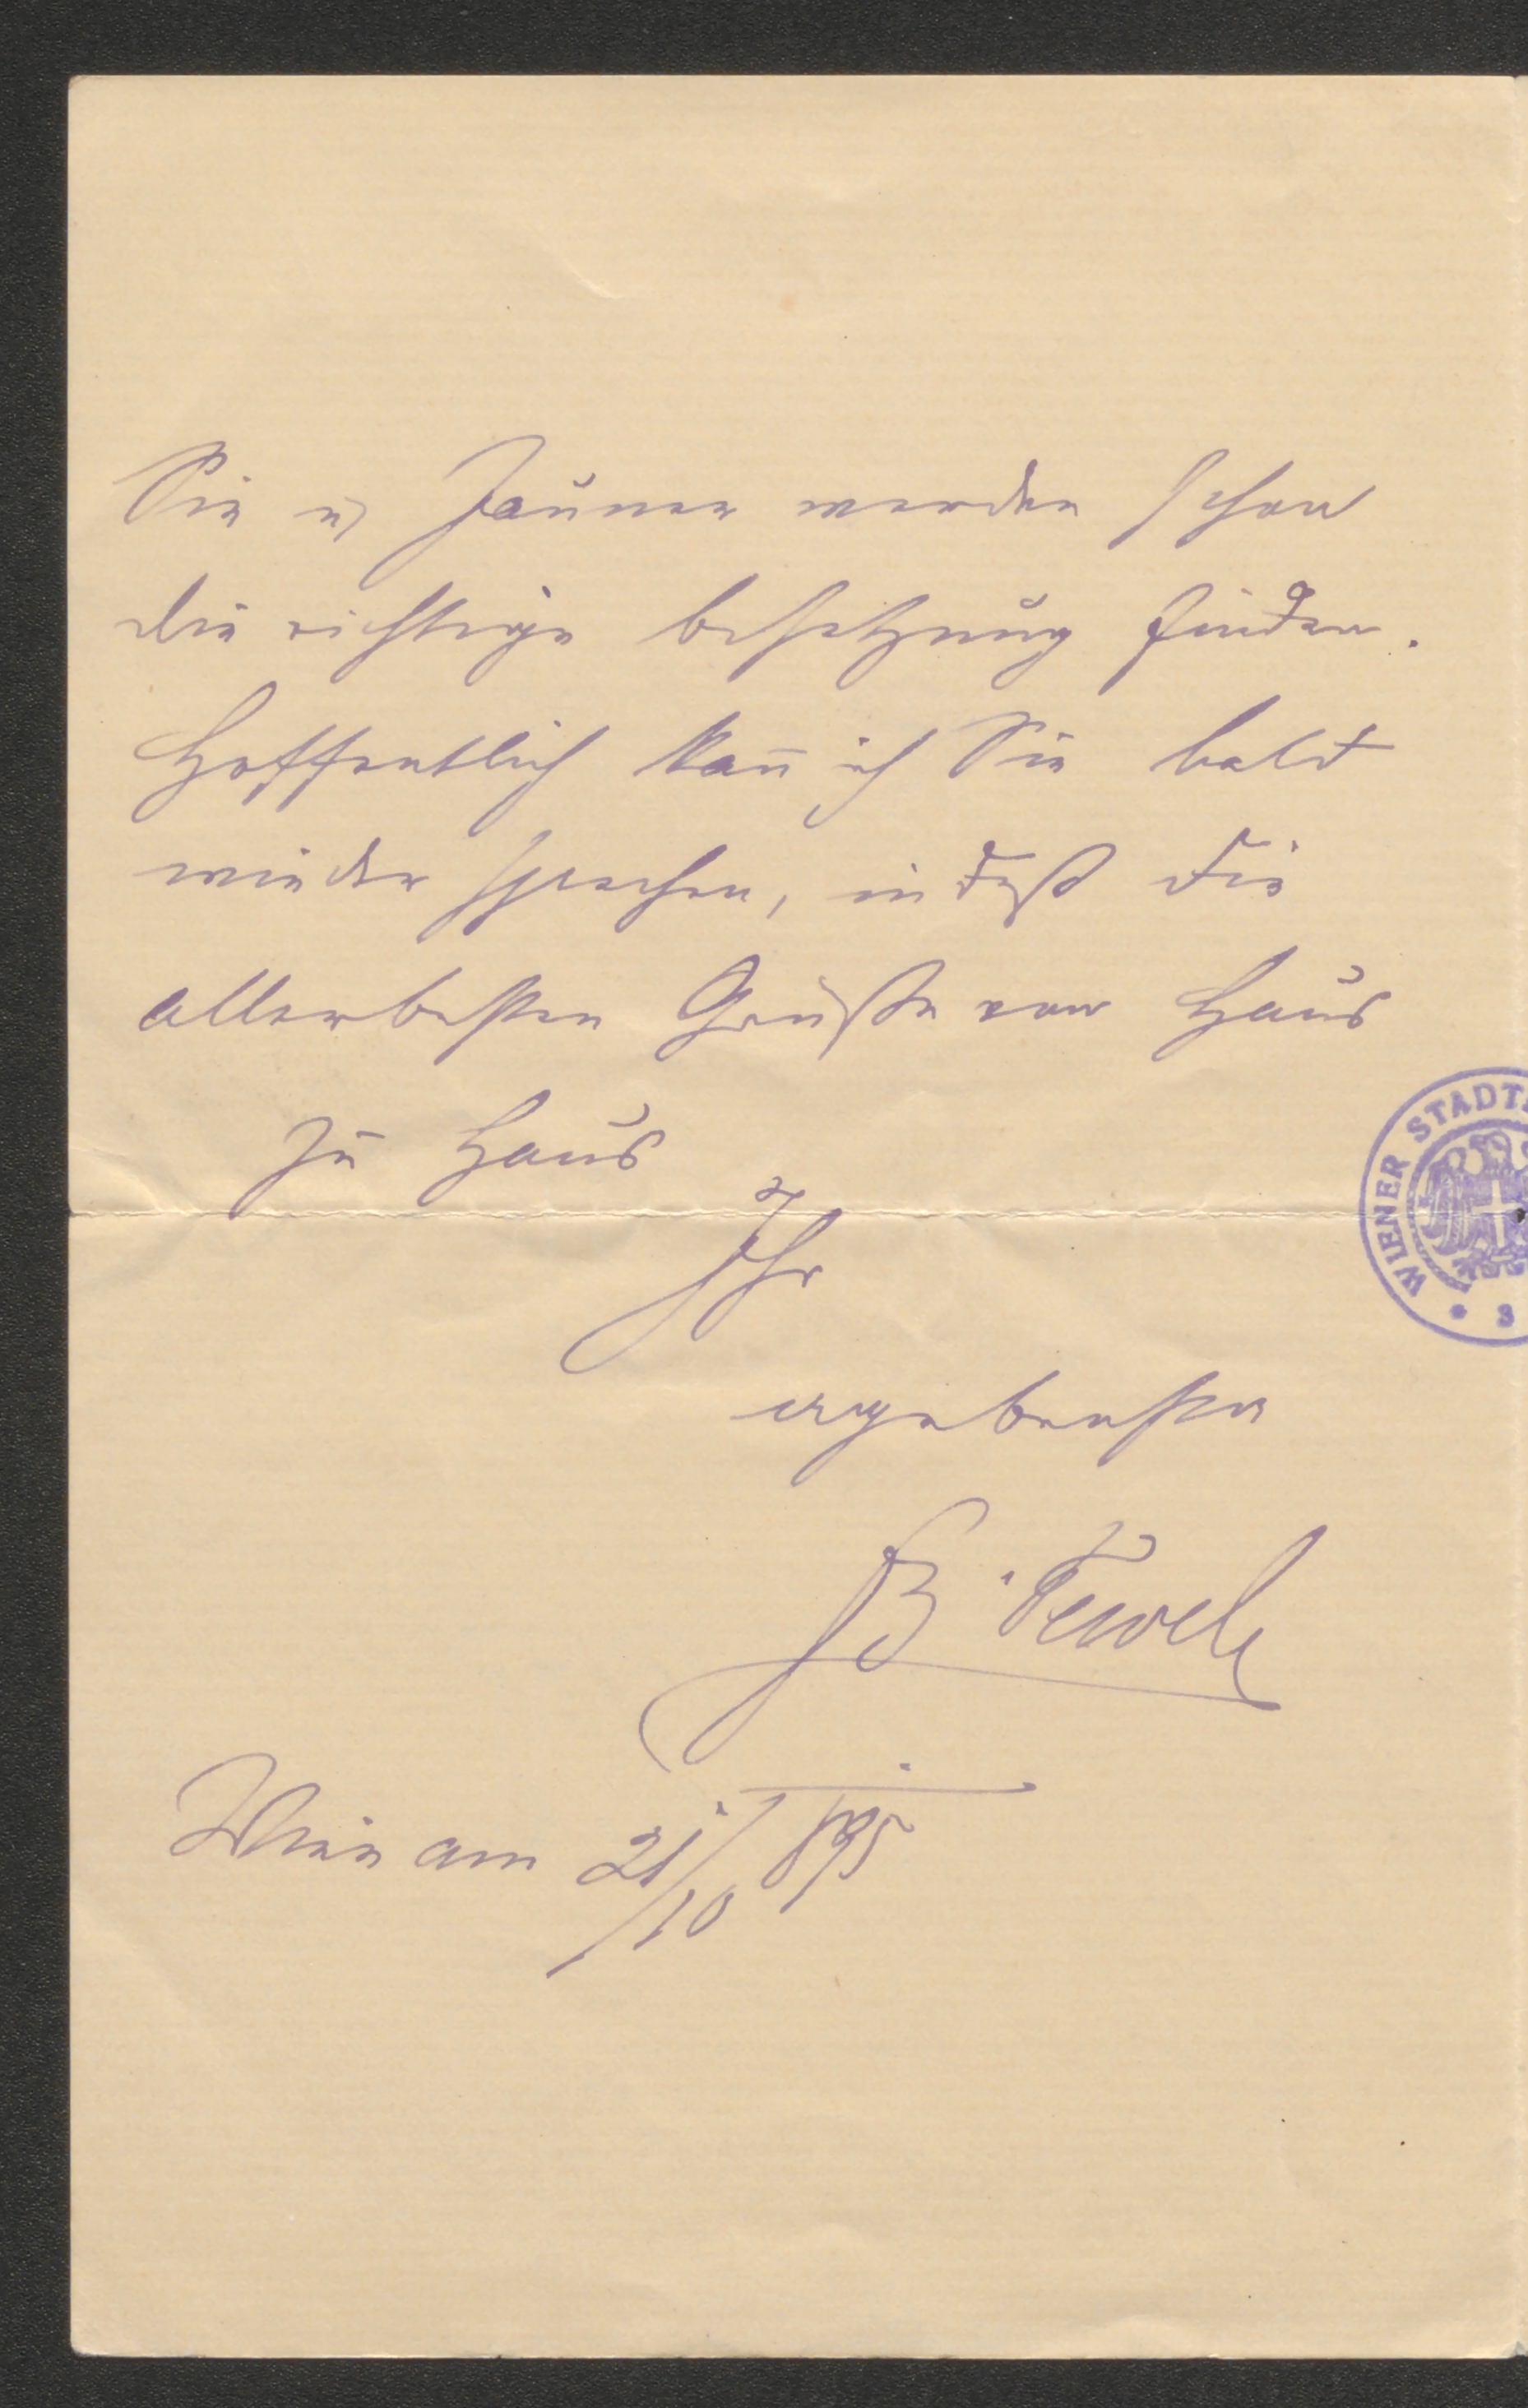 Sie u. Jauner werden schon
die richtige besetzung finden.
Hoffentlich kan̄ ich Sie bald
wieder sprechen, indeß die
allerbesten Grüße von Haus
zu Haus
Ihr
ergebenster
F. Tewele
Wien am 21/10 895
WIENER STADT